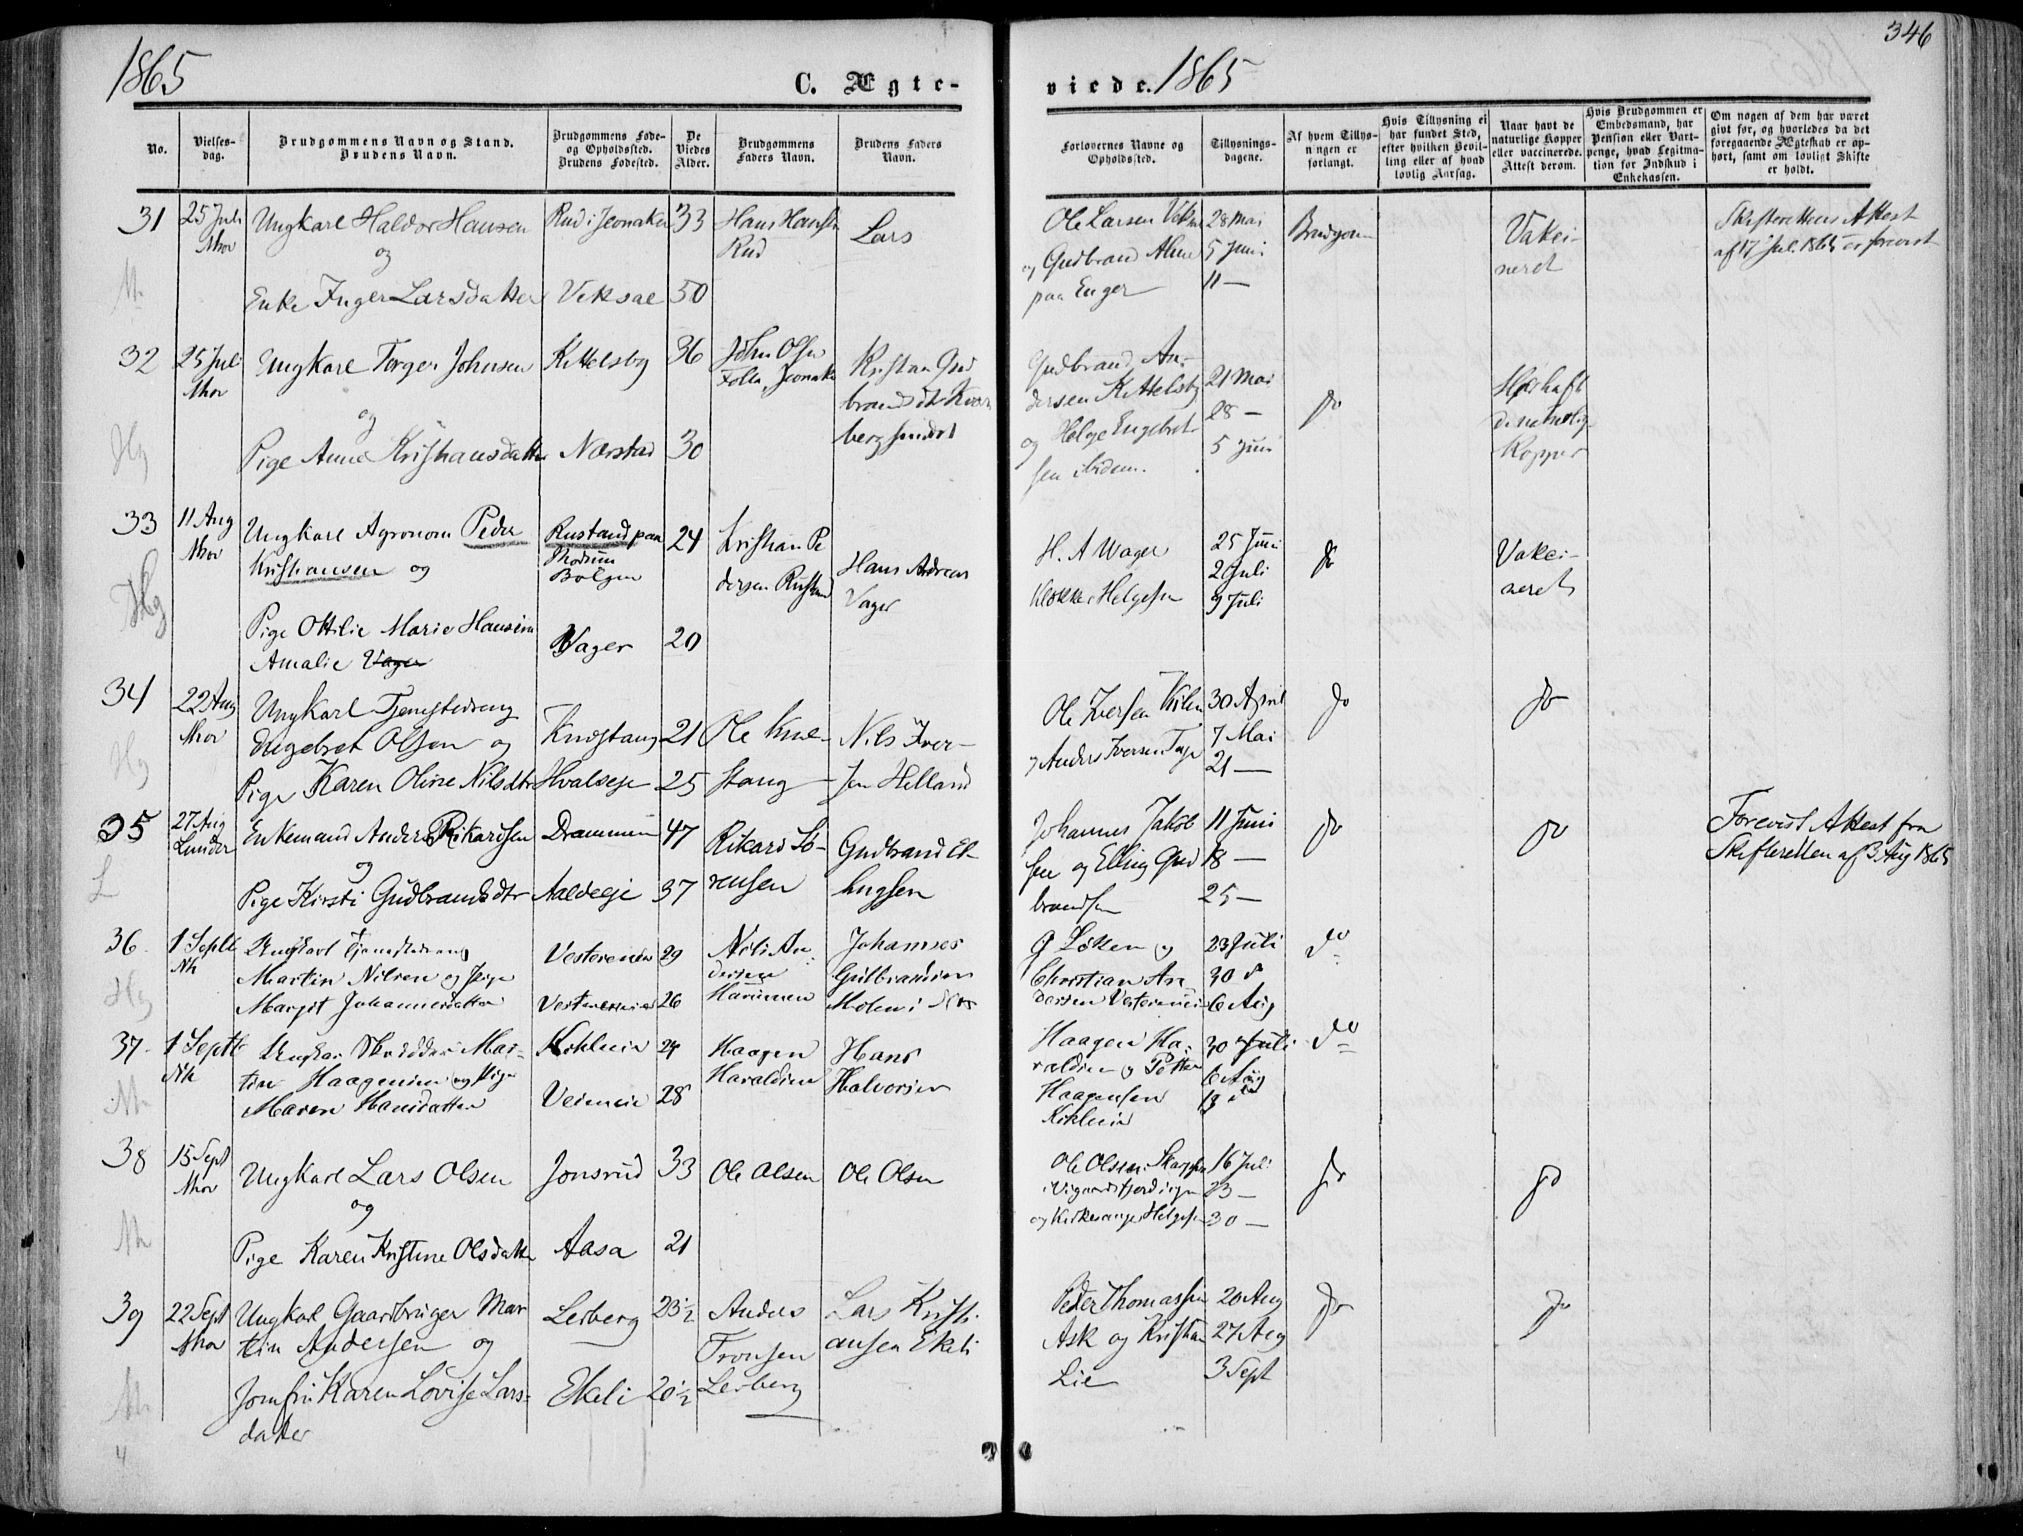 1865
C. Ægte-
No.
Vielses-
dag.
Brudgommens Navn og Stand.
Brudens Navn.
Brudgommens Føde-
og Opholdssted.
Brudens Fødested.
De
Viedes
Alder.
Brudgommens
Faders Navn.
Brudens Faders
Navn.
31
25 Juli
Ungkarl Haldor Hansen
og
Enke Inger Larsdatter
Rud i
Veksal
33
50
Hans Hansen
Rud
Lars
32
25 Juli
Ungkarl Torger Johnsen
og
Pige Anne Kristiansdatter
Kittelsby
Nærstad
36
30
John Olsen
33
11 Aug
Ungkarl Agronom Peder
Kristiansen og
Pige Ottilie Marie Hansine
Amalie Vager
Rustand paa
Modum
Vager
24
20
Kristian Pe
dersen Rustand
Hans Andreas
Vager
34
22 Aug
Ungkarl Tjenestedreng
Engebret Olsen og
Pige Karen Oline Nilsdtr
Knestang
Hvalseje
21
25
Ole Kne-
stang
Nils Iver-
sen Helland
35
27 Aug
Lunder
Enkemand Anders Rikardsen
og
Pige Kirsti Gudbrandsdtr
Drammen
Aaldeeje
47
37
Rikard Sö-
rensen
Gudbrand El-
lingsen
36
1 Septb
Ungkarl Tjenestedreng
Martin Nilsen og Pige
Margit Johannesdatter
Vestereneie
29
26
Nils An-
dersen
Johannes
Gulbrandsen
Moen i
37
1 Septb
Mar-
tin Haagensen og Pige
Maren Hansdatter
Veieneie
28
Haagen
Haraldsen
Hans
Halvorsen
38
15 Sept
Ungkarl Lars Olsen
og
Pige Karen Kristine Olsdatter
Jonsrud
Aasa
33
21
Ole Olsen
Ole Olsen
39
22 Sept
Ungkarl Gaardbruger Mar
tin Andersen og
Jomfru Karen Lovise Lars-
datter
Lesberg
Ekeli
23 ½
20 ½
Anders
Tronsen
Lesberg
Lars Kristi
ansen Ekeli
346
viede. 1865
Forlovernes Navne og
Opholdssted.
Tillysnings-
dagene.
Af hvem Tillys-
ningen er
forlangt.
Hvis Tillysning ei
har fundet Sted,
efter hvilken Bevil-
ling eller af hvad
lovlig Aarsag.
Naar havt de
naturlige Kopper
eller vaccinerede.
Attest derom.
Hvis Brudgommen er
Embedsmand, har
Pension eller Vart-
penge, hvad Legitima-
tion for Indskud i
Enkekassen.
Om nogen af dem har været
givt før, og hvorledes da det
foregaaende Ægteskab er op-
hørt, samt om lovligt Skifte
er holdt.
Ole Larsen
og Gudbrand
paa Enger
28 Mai
5 Juni
11 —
Brudgom
Vakci-
neret
Skifterettens Attest
af 17 Jul. 1865 er forevist
Gudbrand An-
dersen Kittelsby
og Helge Engebret-
sen ibidem.
21 Mai
28 —
5 Juni
do
Kopper
H. A Wager
Klokker Helgesen
25 Juni
2 Juli
9 Juli
do
Vakci-
neret
Ole Iversen
Anders Iversen
30 April
7 Mai
21 —
do
do
Johannes Jakob
sen og Elling Gud
brandsen
11 Juni
18 —
25 —
do
do
Forevist Attest fra
Skifteretten af 3 Aug 1865
Løken og
Christian An
dersen
23 Juli
30 d
6 Aug
do
Haagen Ha-
raldsen og Petter
Haagensen
30 Juli
6 Aug
13
do
Ole Olsen
og Kirkesanger Helgesen
16 Juli
23 —
30 —
do
do
Peder Thomassen
Ask og Kristian
Lie
20 Aug
27 Aug
3 Sept
do
do